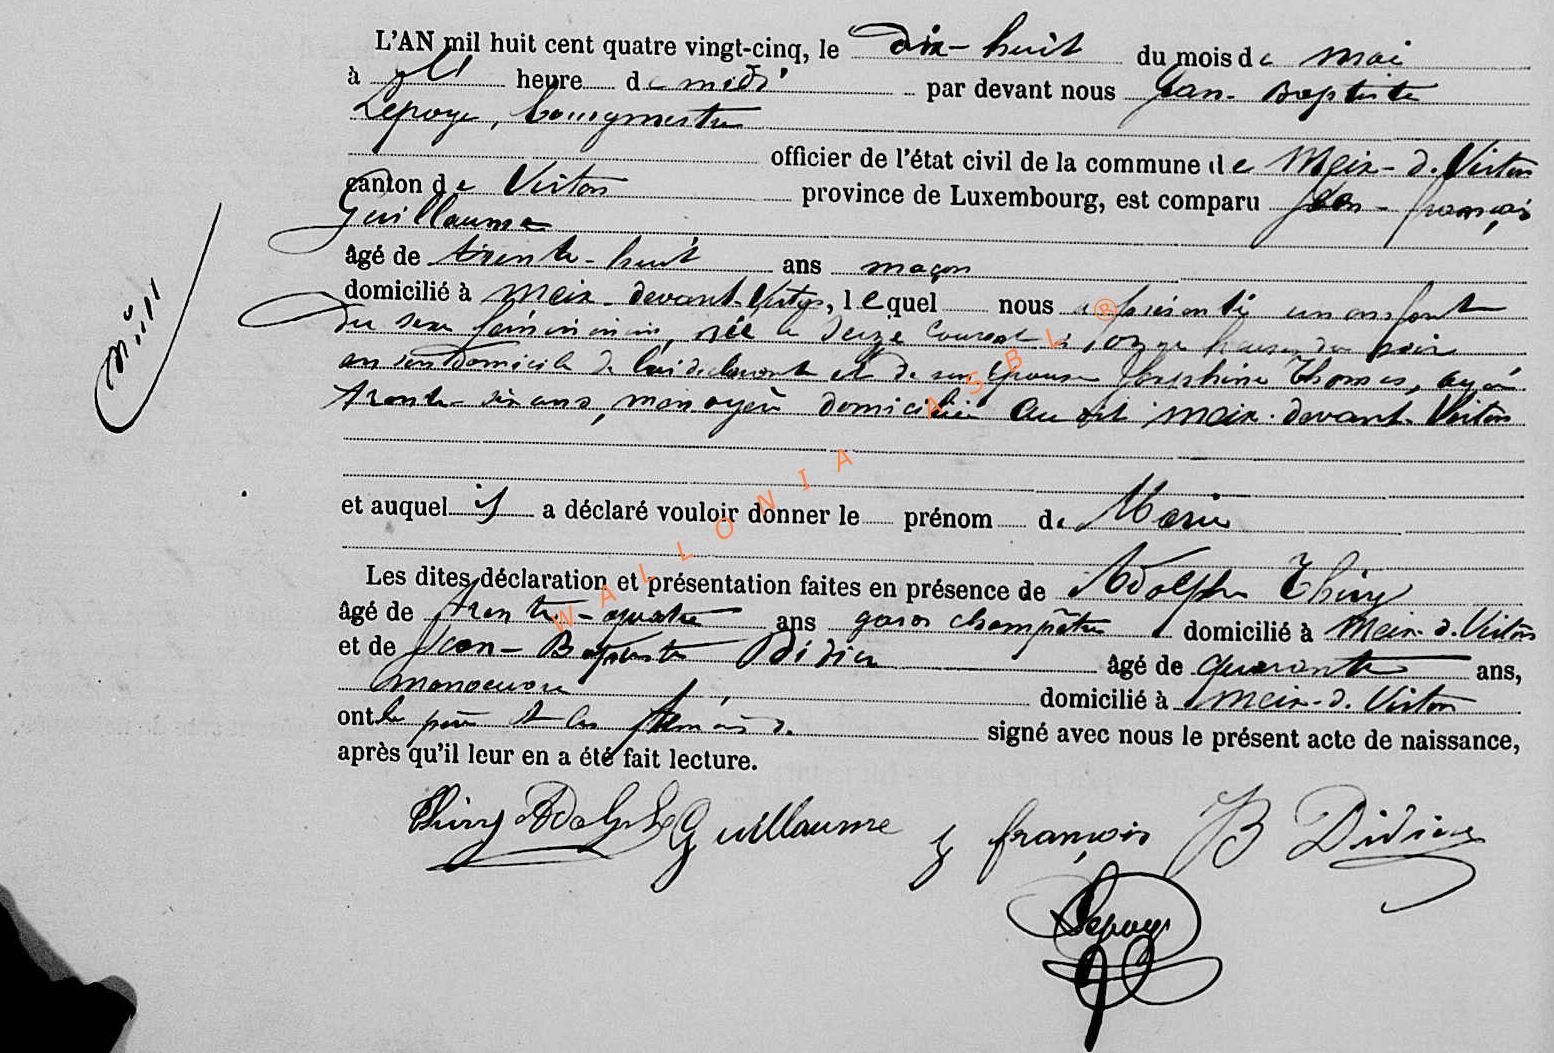 L'AN mil huit cent quatre vingt-cinq, le dix-huit du mois de mai
à heure de midi par devant nous Jean-Baptiste
Lepoye, bourgmestre
officier de l'état civil de la commune de Meix-d.-Virton
canton de Virton province de Luxembourg, est comparu Jean-françois
Guillaume
âgé de trente-huit ans maçon
domicilié à Meix-devant-Virton, lequel nous a présenté un enfant
du sexe féminin, née le seize courant à onze heures du soir
en son domicile de lui déclarant et de son épouse Joséphine Thomas, âgée
trente-six ans, ménagère domiciliée au dit Meix-devant-Virton
et auquel il a déclaré vouloir donner le prénom de Marie
Les dites déclaration et présentation faites en présence de Adolphe Thiry
âgé de trente-quatre ans garde champêtre domicilié à Meix-d.-Virton
et de Jean-Baptiste Didier âgé de quarante ans,
manoeuvre domicilié à Meix-d.-Virton
ont le père et les témoins signé avec nous le présent acte de naissance,
après qu'il leur en a été fait lecture.
Thiry Adolphe Guillaume J françois JB Didier
Lepoye
WALLONIA ASBL ®